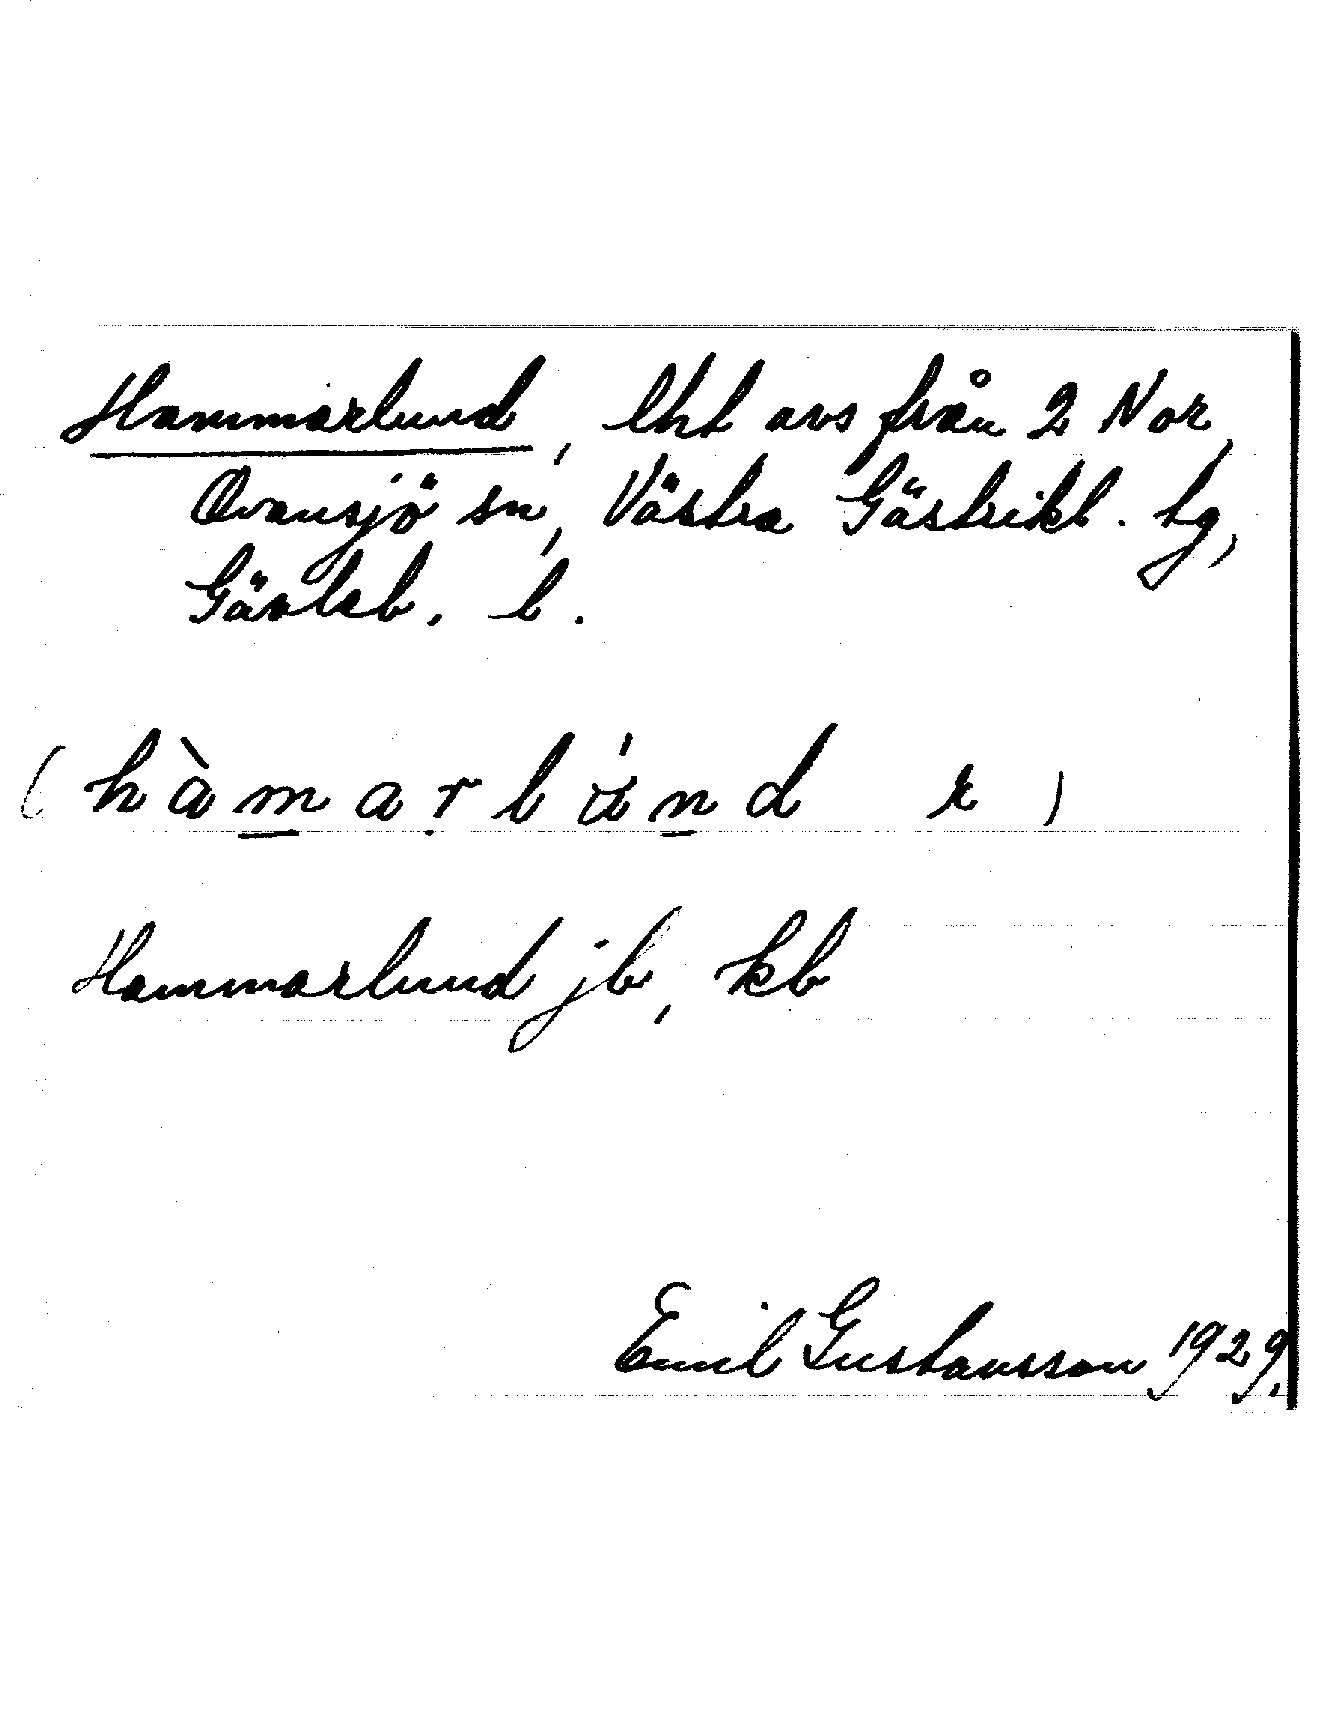 Hammarlund, lht avs från 2 Nor,
Ovansjö sn, Västra Gästrikl. tg,
Gävleb. l.
(hàmarlund r)
Hammarlund jb, kb
Emil Gustavsson 1929.